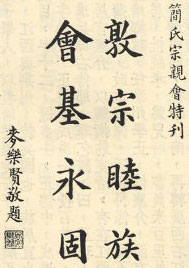 簡氏宗親會特刊
敦宗睦族
會基永固
麥樂賢敬題